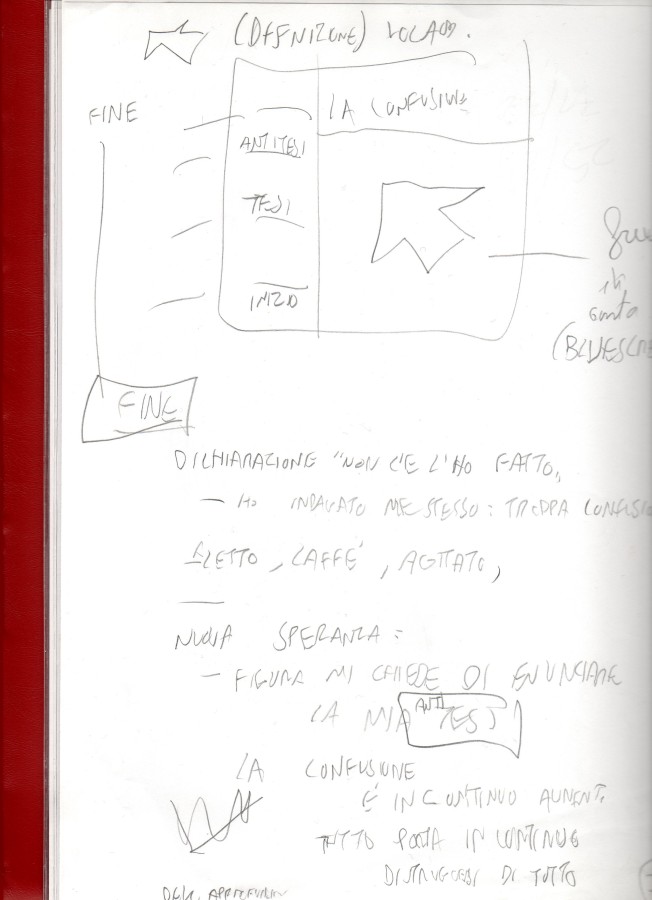 (DEFINIZONE)
FINE
LA CONFUSIONE
ANTITESI
TESI
INIZIO
FINE
DICHIARAZIONE "NON C'E L'HO FATTO"
— HO INDAGATO ME STESSO: TROPPA CONFUSIO
LETTO, CAFFE', AGITATO,
NUOVA SPERANZA:
— FIGURA MI CHIEDE DI ENUNCIARE
LA MIA ANTI TESI
LA CONFUSIONE
È IN CONTINUO AUMENT.
TUTTO PORTA IN CONTINUO
DISTRUGGERSI DI TUTTO